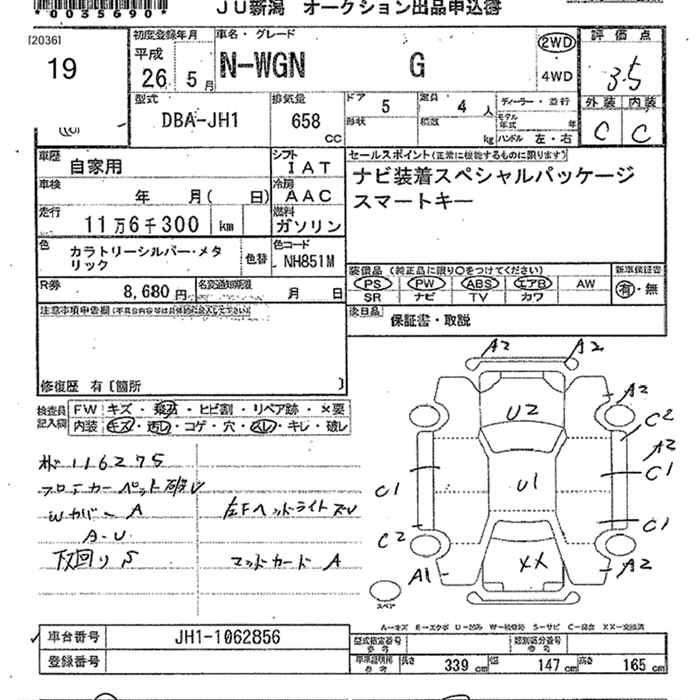 *0035690*
JU新潟 オークション出品申込書
[2036]
19
初度登録年月
平成
26 5月
車名・グレード
N-WGN G
2WD
4WD
評価点
3.5
外装 内装
C C
型式
DBA-JH1
排気量
658 CC
ドア 5
形状
定員 4人
積載 kg
ディーラー・並行
モデル年式 年
ハンドル 左・右
車歴 自家用
シフト IAT
車検 年 月( 日)
冷房 AAC
走行 11万6千300 km
燃料 ガソリン
セールスポイント(正常に機能するものに限ります)
ナビ装着スペシャルパッケージ
スマートキー
色
カラトリーシルバー・メタ
リック
色替
色コード
NH851M
R券 8,680円
名変通知期限 月 日
装備品 (純正品に限り○をつけてください)
PS PW ABS エアB AW
SR ナビ TV カワ
新車保証書
有・無
注意事項申告欄(不具合内容等は具体的に記入して下さい)
後日品 保証書・取説
修復歴 有〔箇所 〕
検査員
記入欄
FW キズ・飛石・ヒビ割・リペア跡・×要
内装 キズ・汚レ・コゲ・穴・スレ・キレ・破レ
116275
フロアカーペット
Wカバー A
左Fヘッドライト
A-U
下回り S
マッドガード A
A2 A2
A2
U2
C2
A2
C1
U1
C1
C1
C2
XX
A1
A2
スペア
A-キズ E-エクボ U-凹み W-補修跡 S-サビ C-腐食 XX-交換済
車台番号 JH1-1062856
登録番号
型式指定番号
参考
類別区分番号
参考
車検証明称
参考
長さ 339cm 幅 147cm 高さ 165cm